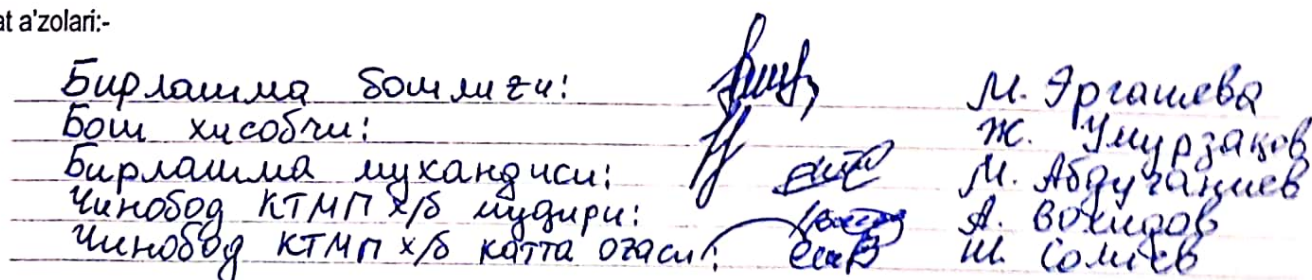 at a'zolari:-
Бирлашма бошлиғи: М. Эргашева
Бош хисобчи: Ж. Умурзаков
Бирлашма мухандиси: М. Абдуғаниев
Чинобод КТМП х/б мудири: А. Вохидов
Чинобод КТМП х/б катта оғаси: Ш. Солиев